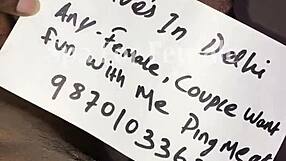 ves In Delhi
Any-Female, Couple Want
fun with Me Ping Me at
987010336